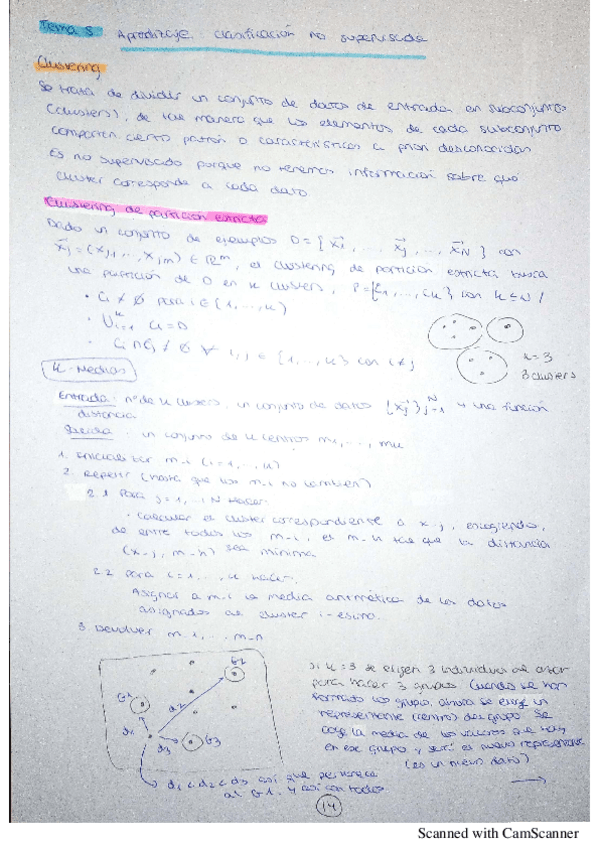 Tema 5 Aprendizaje: clasificación no supervisada
Clustering
Se trata de dividir un conjunto de datos de entrada en subconjuntos
(clusters), de tal manera que los elementos de cada subconjunto
comparten cierto patrón o características a priori desconocidas
Es no supervisado porque no tenemos información sobre qué
cluster corresponde a cada dato.
Clustering de partición estricta
Dado un conjunto de ejemplos D = { x⃗1, ... x⃗j, ..., x⃗N } con
x⃗j = (xj,1, ..., xj,m) ∈ ℝ^m, el clustering de partición estricta busca
una partición de D en k clusters, P = {C1, ..., Ck} con k ≤ N /
· Ci ≠ ∅ para i ∈ {1, ..., k}
· U^k i=1 Ci = D
· Ci ∩ Cj ≠ ∅ ∀ i, j ∈ {1, ..., k} con i≠j
k = 3
3 clusters
K-Medias
Entrada: nº de k clusters, un conjunto de datos {x⃗j}^N j=1 y una función
distancia
Salida: un conjunto de k centros m1, ..., mk
1. Inicializar m-i (i=1, ..., k)
2. Repetir (hasta que los m-i no cambien)
2.1 Para j=1, ..., N hacer:
· Calcular el cluster correspondiente a x-j, escogiendo,
de entre todos los m-i, el m-h tal que la distancia
(x-j, m-h) sea mínima
2.2 Para i=1, ..., k hacer:
Asignar a m-i la media aritmética de los datos
asignados al cluster i-ésimo.
3. Devolver m-1, ... m-n
G2
G1
d2
d1
d3
G3
d1 < d2 < d3 así que pertenece
al G1. Y así con todos
si k=3 se eligen 3 individuos al azar
para hacer 3 grupos. Cuando se han
formado los grupos, ahora se elige un
representante (centro) del grupo. Se
coge la media de los valores que hay
en ese grupo y será el nuevo representante
(es un nuevo dato)
14
Scanned with CamScanner